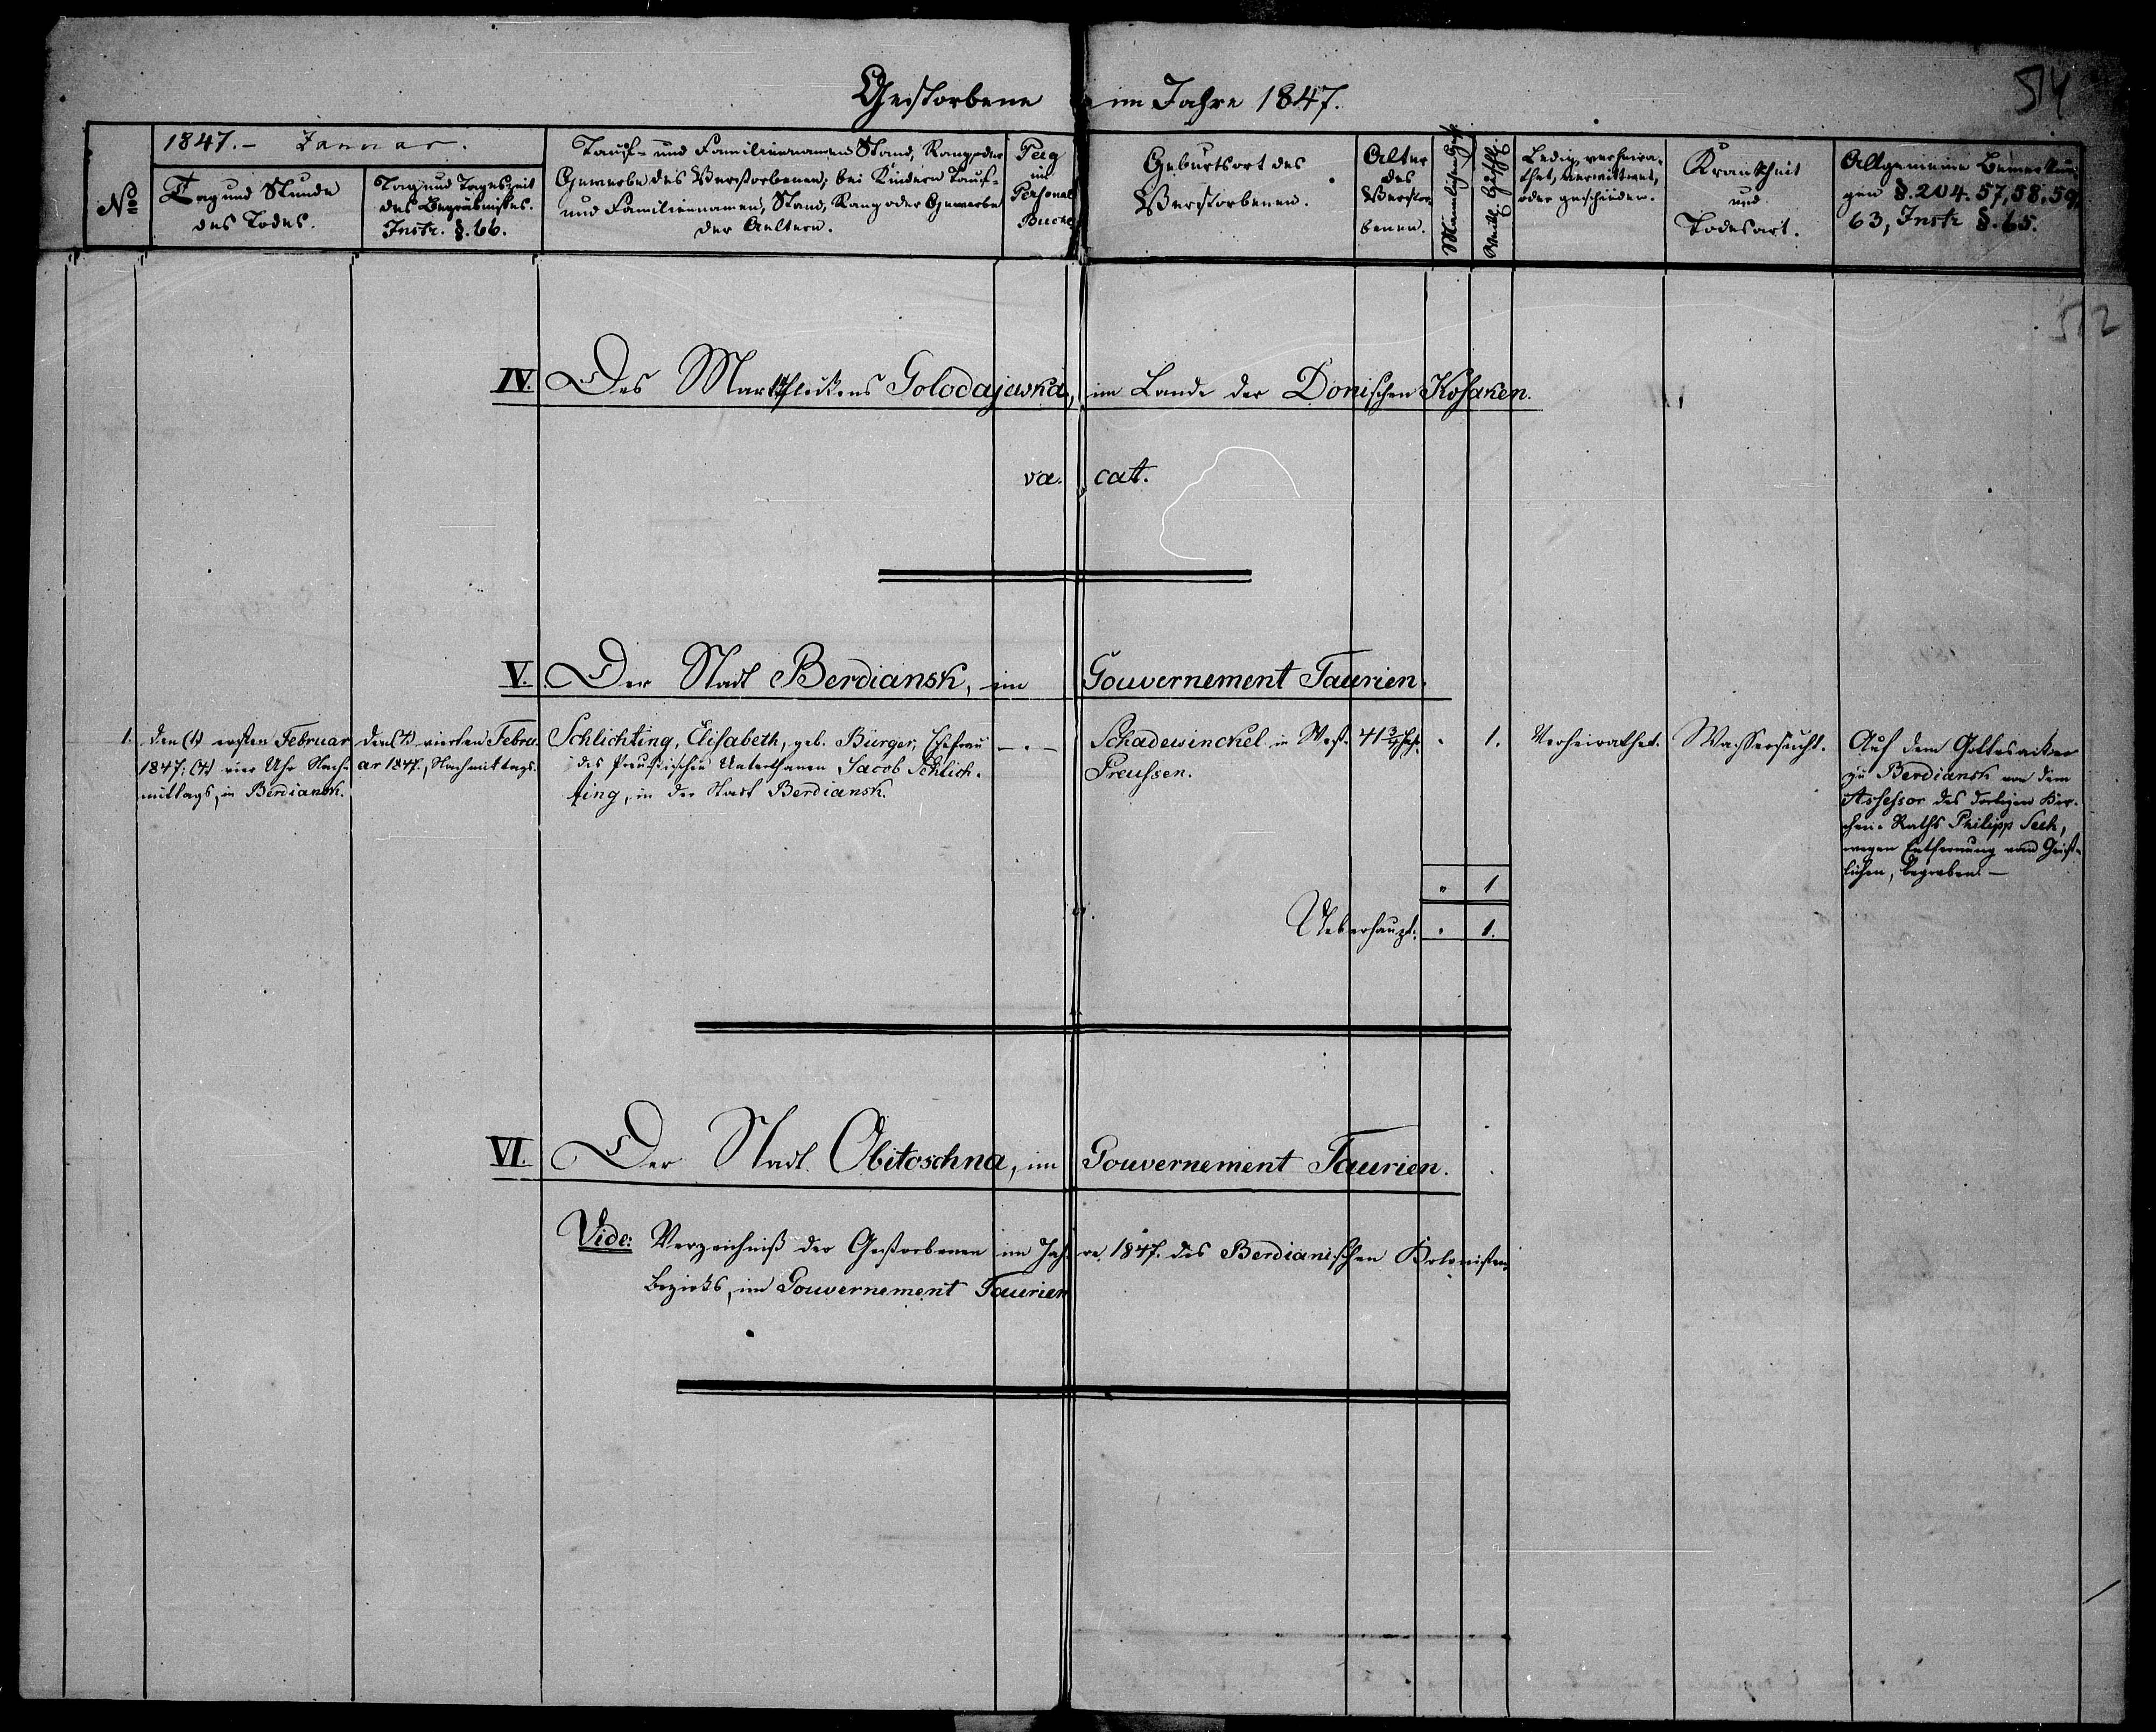 Gestorbene im Jahre 1847.
514
512
1847. - Januar.
No
Tag und Stunde
des Todes.
Tag und Tageszeit
des Begräbnisses.
Instr. §. 66.
Tauf- und Familiennamen, Stand, Rang oder
Gewerbe des Verstorbenen, bei Kindern Tauf-
und Familiennamen, Stand, Rang oder Gewerbe
der Aeltern.
Pag
im
Personal
Buche
Geburtsort des
Verstorbenen.
Alter
des
Verstor-
benen.
Männlichen Geschl.
Weibl. Geschl.
Ledig, verheira-
thet, verwittwet,
oder geschieden.
Krankheit
und
Todesart.
Allgemeine Bemerkun-
gen §. 204. 57, 58, 59,
63, Instr. §. 65.
IV. Des Marktfleckens Golodajewka, im Lande der Donischen Kosaken.
va. cat.
V. Der Stadt Berdiansk, im Gouvernement Taurien.
1.
den (1) ersten Februar
1847; (4) vier Uhr Nach-
mittags, in Berdiansk.
den (4) vierten Febru-
ar 1847, Nachmittags.
Schlichting, Elisabeth, geb. Bürger, Ehefrau
des Preußischen Unterthanen Jacob Schlich-
ting, in der Stadt Berdiansk.
— " —
Schadewinckel in West-
Preussen.
41 3/4 Jahr.
"
1.
Verheirathet.
Wassersucht.
Auf dem Gottesacker
zu Berdiansk von dem
Assessor des dortigen Kir-
chen-Raths Philipp Sech,
wegen Entfernung vom Geist-
lichen, begraben. —
" 1
Ueberhaupt: " 1.
VI. Der Stadt Obitoschna, im Gouvernement Taurien.
Vide: Verzeichniß der Gestorbenen im Jahre 1847. des Berdianischen Kolonisten-
bezirks, im Gouvernement Taurien